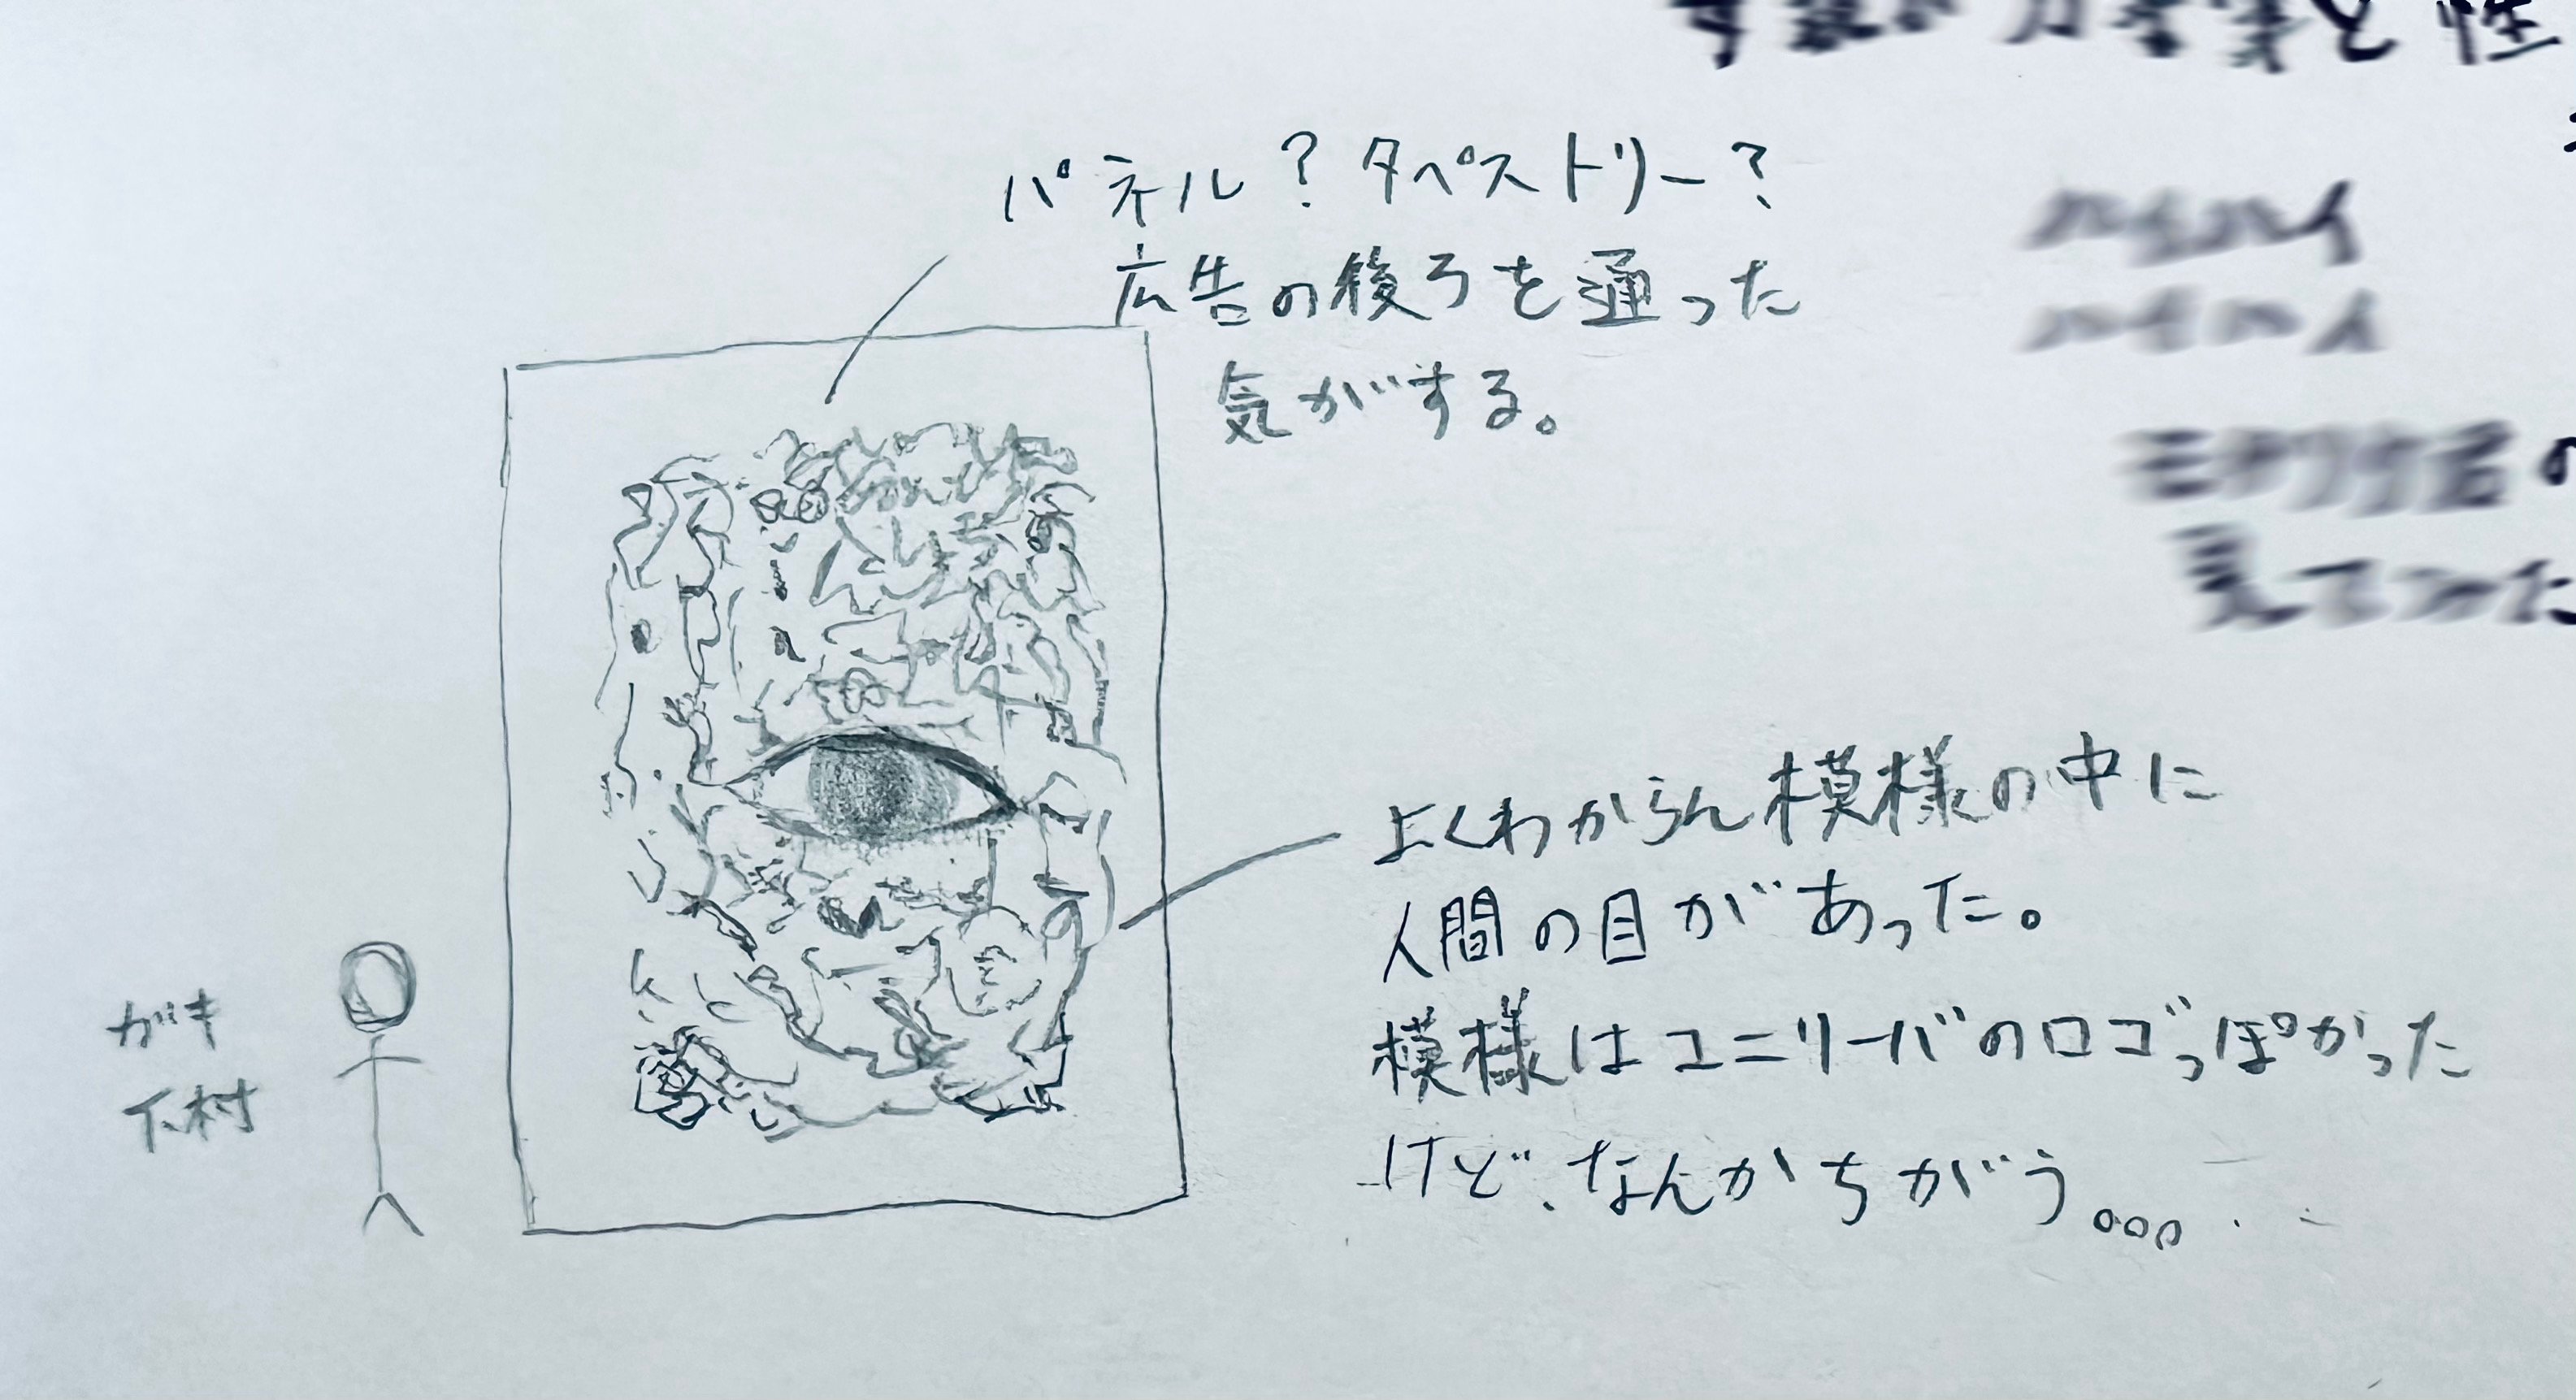 パネル？タペストリー？
広告の後ろを通った
気がする。
よくわからん模様の中に
人間の目があった。
模様はユニリーバのロゴっぽかった
けど、なんかちがう。。。
ガキ
下村